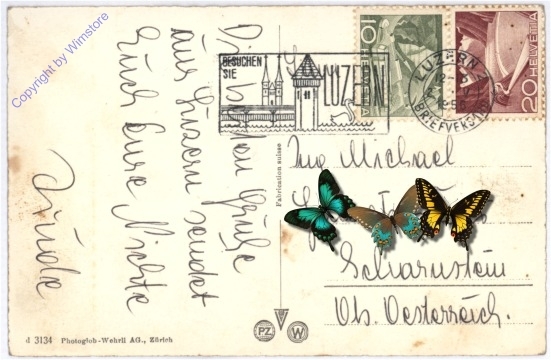 Copyright by Wimstore
Viele
aus Luzern sendet
Euch Eure Nichte
Trude
BESUCHEN
SIE
LUZERN
10 HELVETIA
20 HELVETIA
LUZERN 2
BRIEFVERSAND
Fabrication suisse
Ing Michael
Scharnstein.
Ob. Oesterreich.
d 3134 Photoglob-Wehrli AG., Zürich
PZ W